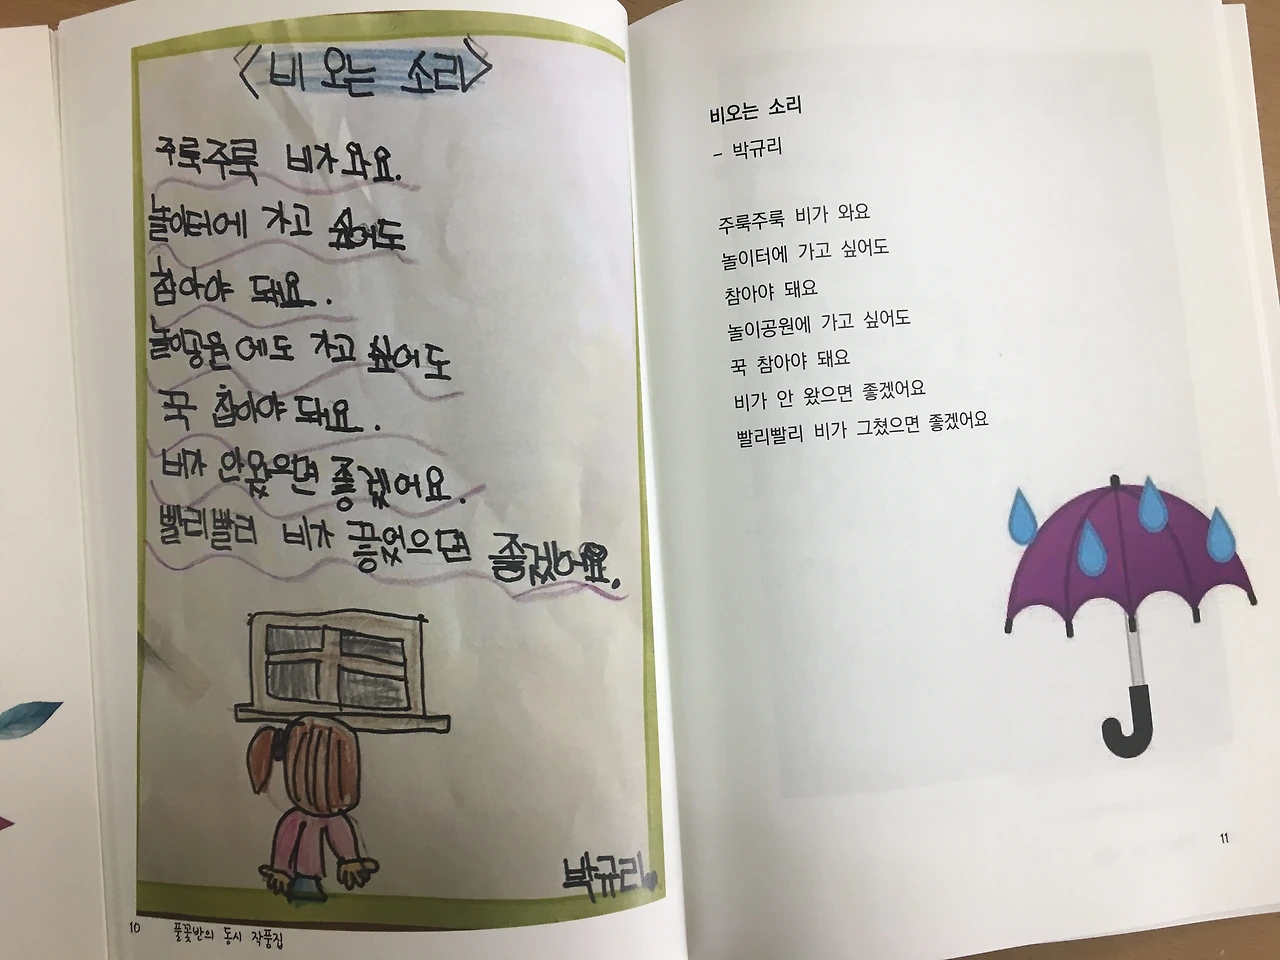 <비 오는 소리>
주룩주룩 비가와요.
놀이터에 가고 싶어도
참아야 돼요.
놀이공원에도 가고 싶어도
꾹 참아야 돼요.
비가 안왔으면 좋겠어요.
빨리빨리 비가 끝었으면 좋겠어요.
박규리
10 풀꽃반의 동시 작품집
비오는 소리
- 박규리
주룩주룩 비가 와요
놀이터에 가고 싶어도
참아야 돼요
놀이공원에 가고 싶어도
꾹 참아야 돼요
비가 안 왔으면 좋겠어요
빨리빨리 비가 그쳤으면 좋겠어요
11